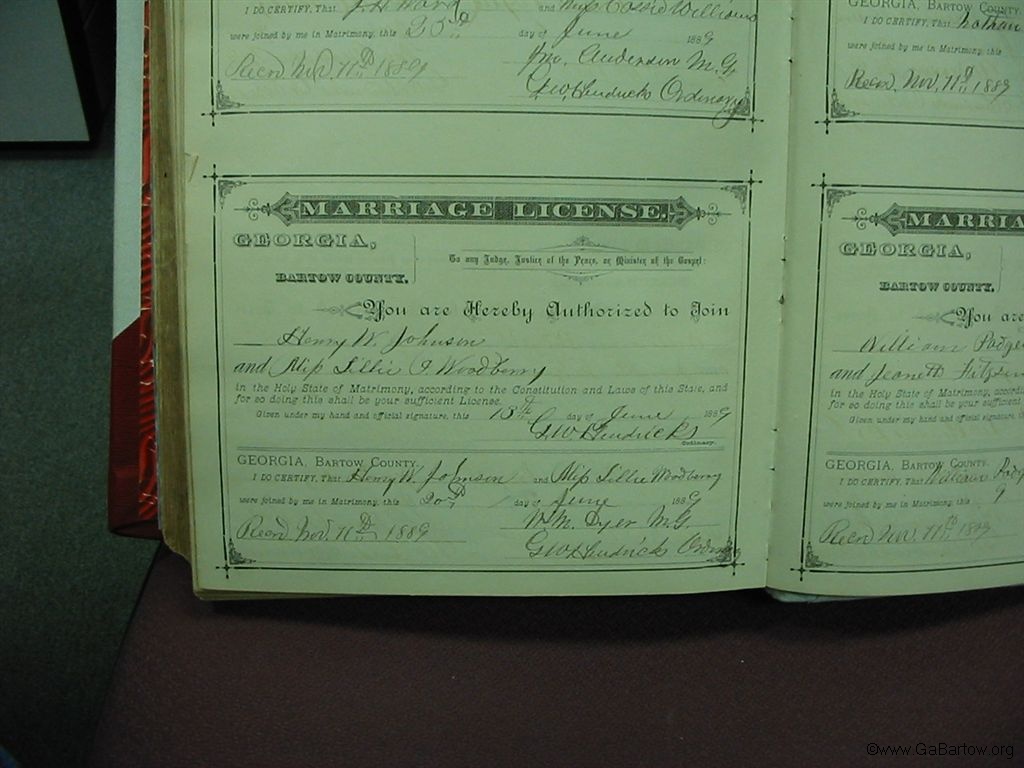 I DO CERTIFY, That J. H. Ward and Miss Williams
were joined by me in Matrimony, this 25th day of June 1889
Recd Nov. 11th 1889
Jno. Anderson M.G.
G.W. Hendricks Ordinary
MARRIAGE LICENSE.
GEORGIA,
BARTOW COUNTY.
To any Judge, Justice of the Peace, or Minister of the Gospel:
You are Hereby Authorized to Join
Henry W. Johnson
and Miss Lillie I Woodberry
in the Holy State of Matrimony, according to the Constitution and Laws of this State, and
for so doing this shall be your sufficient License.
Given under my hand and official signature, this 13th day of June 1889
G.W. Hendricks
Ordinary.
GEORGIA, BARTOW COUNTY.
I DO CERTIFY, That Henry W. Johnson and Miss Lillie Woodberry
were joined by me in Matrimony, this 20th day of June 1889
W. M. Dyer M.G.
Recd Nov. 11th 1889
G.W. Hendricks Ordinary
GEORGIA, BARTOW COUNTY.
I DO CERTIFY, That Nathan
were joined by me in Matrimony, this
Recd. Nov. 11th 1889
MARRIA
GEORGIA,
BARTOW COUNTY.
You are
William Padge
and Jeanett
in the Holy State of Matrimony, accord
for so doing this shall be your sufficient
Given under my hand and official signature,
GEORGIA, BARTOW COUNTY.
I DO CERTIFY, That William Padg
were joined by me in Matrimony, this 9
Recd Nov. 11th 1889
©www.GaBartow.org